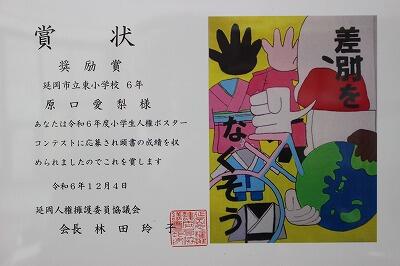 賞状
奨励賞
延岡市立東小学校 6年
原口愛梨様
あなたは令和6年度小学生人権ポスター
コンテストに応募され頭書の成績を収
められましたのでこれを賞します
令和6年12月4日
延岡人権擁護委員協議会
会長 林田玲子
差別を
なくそう